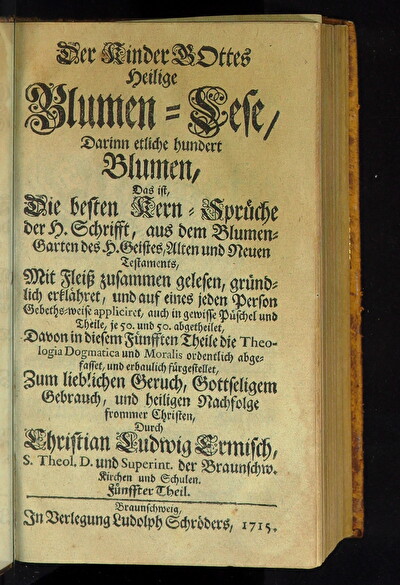 Der Kinder GOttes
Heilige
Blumen-Lese/
Darinn etliche hundert
Blumen,
Das ist,
Die besten Kern-Sprüche
der H. Schrifft, aus dem Blumen-
Garten des H. Geistes/Alten und Neuen
Testaments,
Mit Fleiß zusammen gelesen, gründ-
lich erklähret, und auf eines jeden Person
Gebeths-weise appliciret, auch in gewisse Püschel und
Theile, je 50. und 50. abgetheilet,
Davon in diesem Fünfften Theile die Theo-
logia Dogmatica und Moralis ordentlich abge-
fasset, und erbaulich fürgestellet,
Zum lieblichen Geruch, Gottseligem
Gebrauch, und heiligen Nachfolge
frommer Christen,
Durch
Christian Ludwig Ermisch,
S. Theol. D. und Superint. der Braunschw.
Kirchen und Schulen.
Fünffter Theil.
Braunschweig,
In Verlegung Ludolph Schröders, 1715.